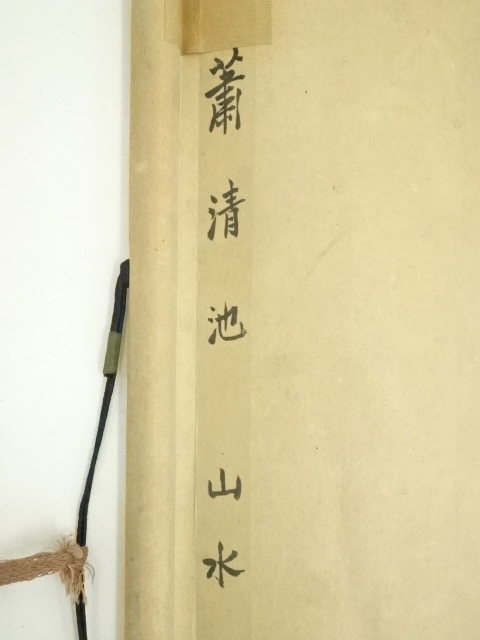 蕭清池 山水